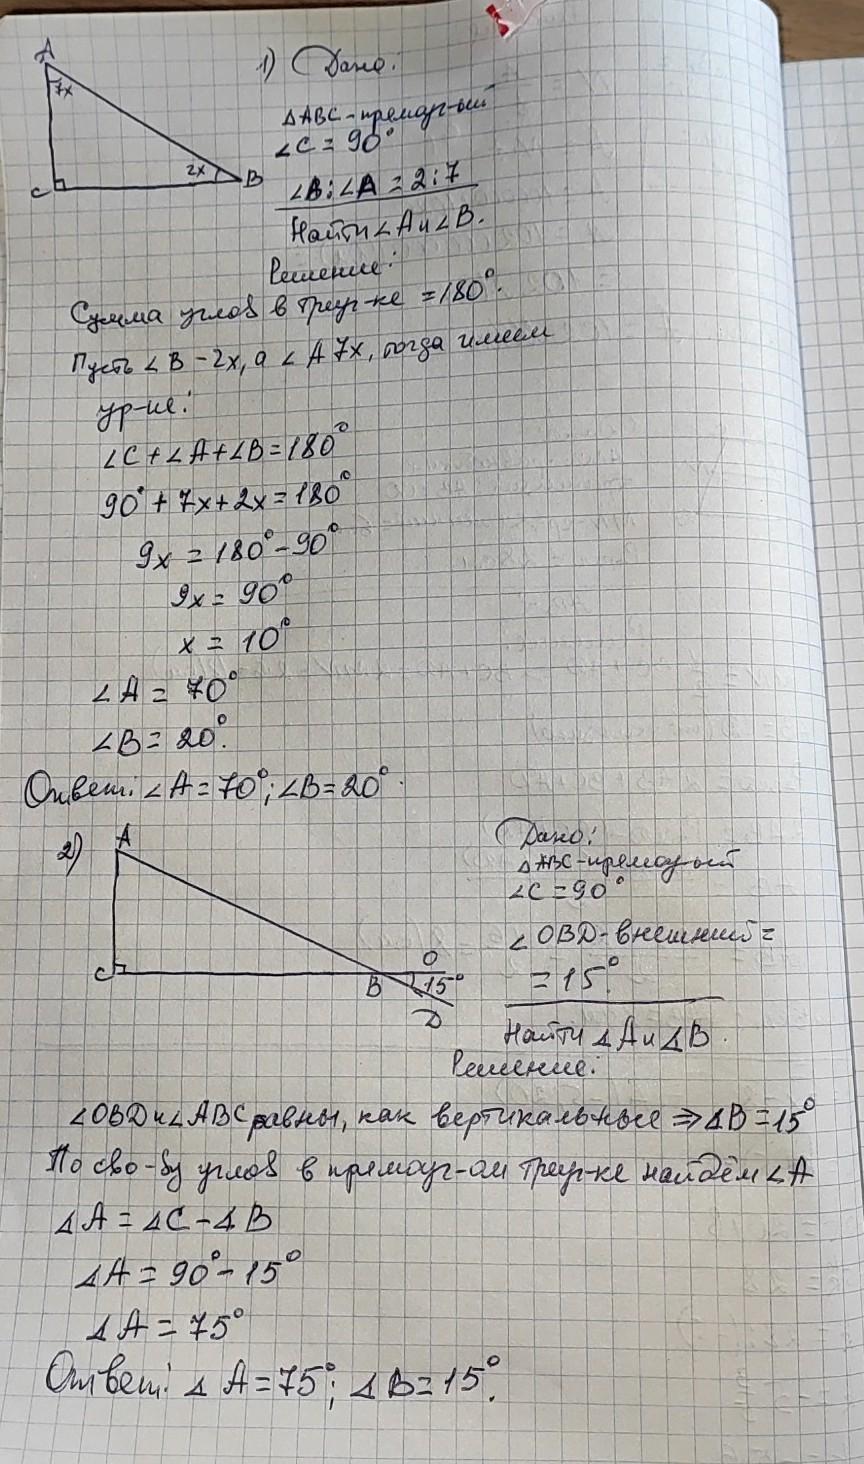 A
7x
2x
C
B
1) Дано:
△ABC - прямоуг-ый
∠C = 90°
∠B : ∠A = 2 : 7
Найти ∠A и ∠B.
Решение:
Сумма углов в треуг-ке = 180°.
Пусть ∠B - 2x, а ∠A 7x, тогда имеем
ур-ие:
∠C + ∠A + ∠B = 180°
90° + 7x + 2x = 180°
9x = 180° - 90°
9x = 90°
x = 10°
∠A = 70°
∠B = 20°.
Ответ: ∠A = 70°; ∠B = 20°.
2)
A
C
B
O
15°
D
Дано:
△ABC - прямоуг-ый
∠C = 90°
∠OBD - внешний =
= 15°.
Найти ∠A и ∠B.
Решение:
∠OBD и ∠ABC равны, как вертикальные ⇒ ∠B = 15°
По сво-ву углов в прямоуг-ом треуг-ке найдём ∠A
∠A = ∠C - ∠B
∠A = 90° - 15°
∠A = 75°
Ответ: ∠A = 75°; ∠B = 15°.